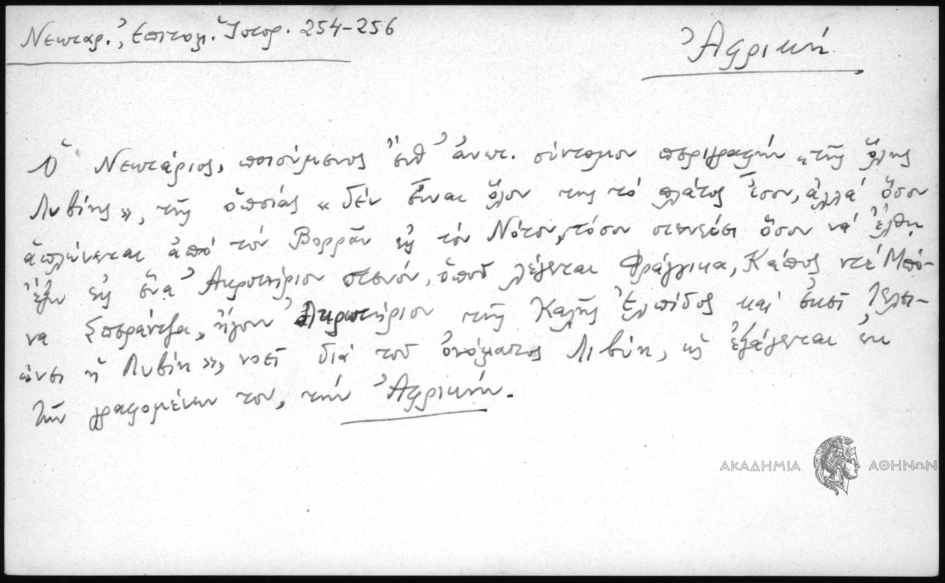 Νεκταρ., Ἐπιτομ. Ἱστορ. 254-256
Ἀφρική
Ὁ Νεκτάριος, ποιούμενος ἐνθ' ἀνωτ. σύντομον περιγραφήν «τῆς ὅλης
Λυβίης», τῆς ὁποίας «δέν εἶναι ὅλον της τό πλάτος ἴσον, ἀλλά ὅσον
ἁπλώνεται ἀπό τόν Βορρᾶν εἰς τόν Νότον, τόσον στενεύει ὅσον νά ἔλθῃ
ἔξω εἰς ἕνα Ἀκρωτήριον στενόν, ὁποῦ λέγεται Φράγγικα, Κάπος ντέ Μπό-
να Σπεράντζα, ἤγουν Ἀκρωτήριον τῆς Καλῆς Ἐλπίδος καί ἐκεῖ τελει-
ώνει ἡ Λυβίη», νοεῖ διά τοῦ ὀνόματος Λιβύη, ὡς ἐξάγεται ἐκ
τῶν γραφομένων του, τήν Ἀφρικήν.
ΑΚΑΔΗΜΙΑ ΑΘΗΝΩΝ